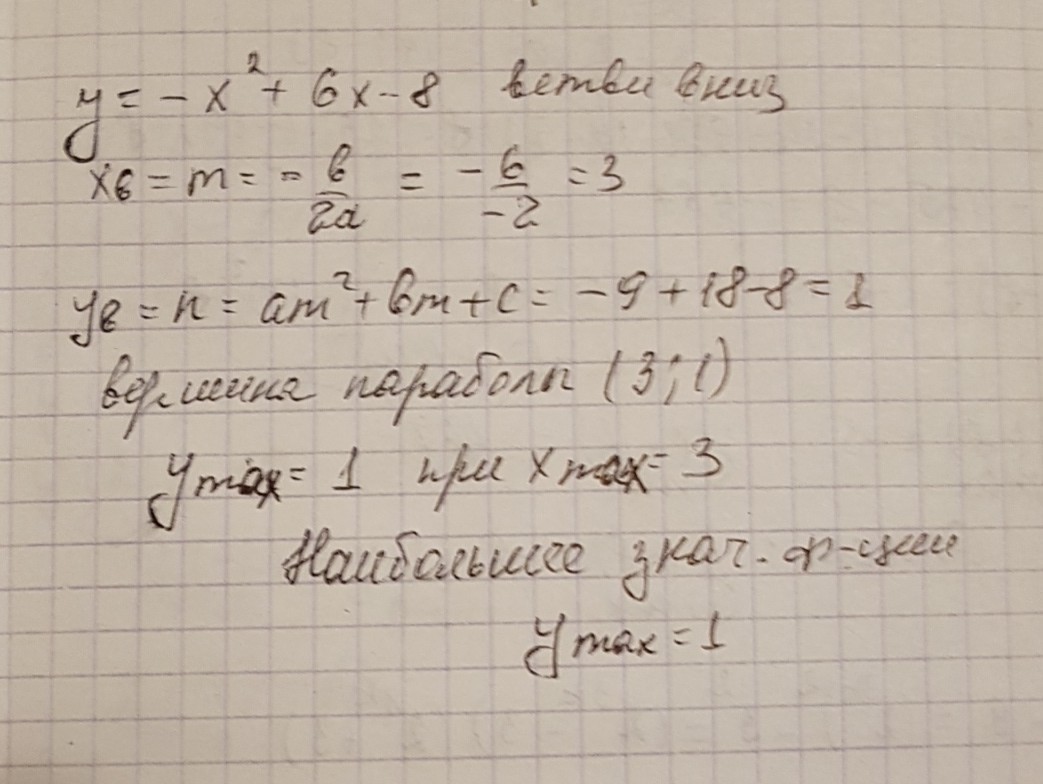 y = -x² + 6x - 8 ветви вниз
xв = m = -в/2a = -6/-2 = 3
yв = n = am² + вm + c = -9 + 18 - 8 = 1
вершина параболы (3; 1)
ymax = 1 при xmax = 3
Наибольшее знач. ф-ции
ymax = 1